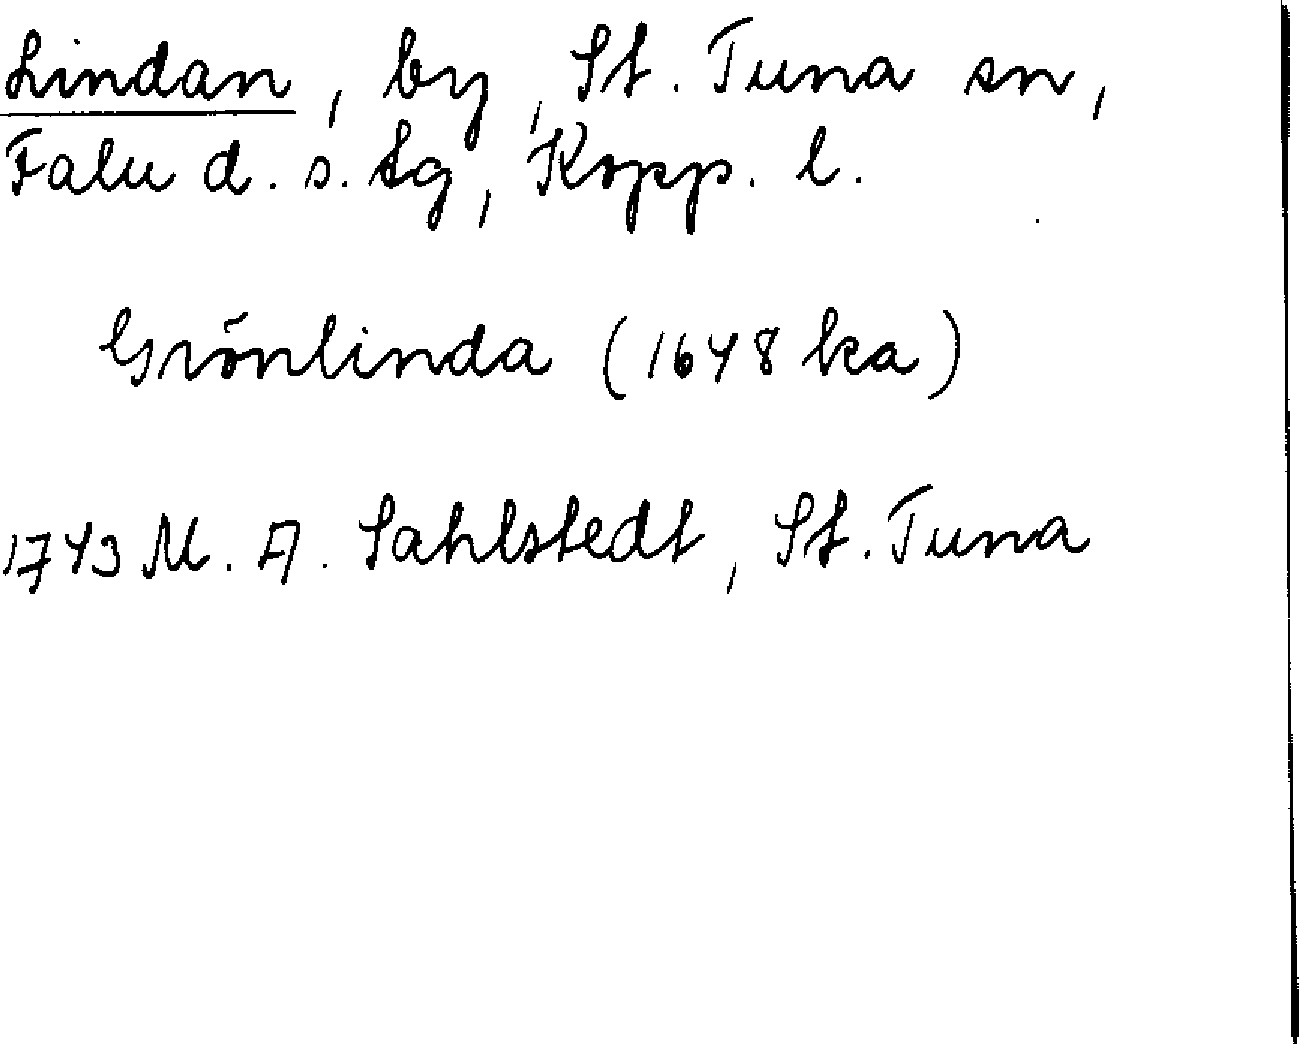 Lindan, by, St. Tuna sn,
Falu d. s. tg, Kopp. l.
Grönlinda (1648 ka)
1743 M. A. Sahlstedt, St. Tuna